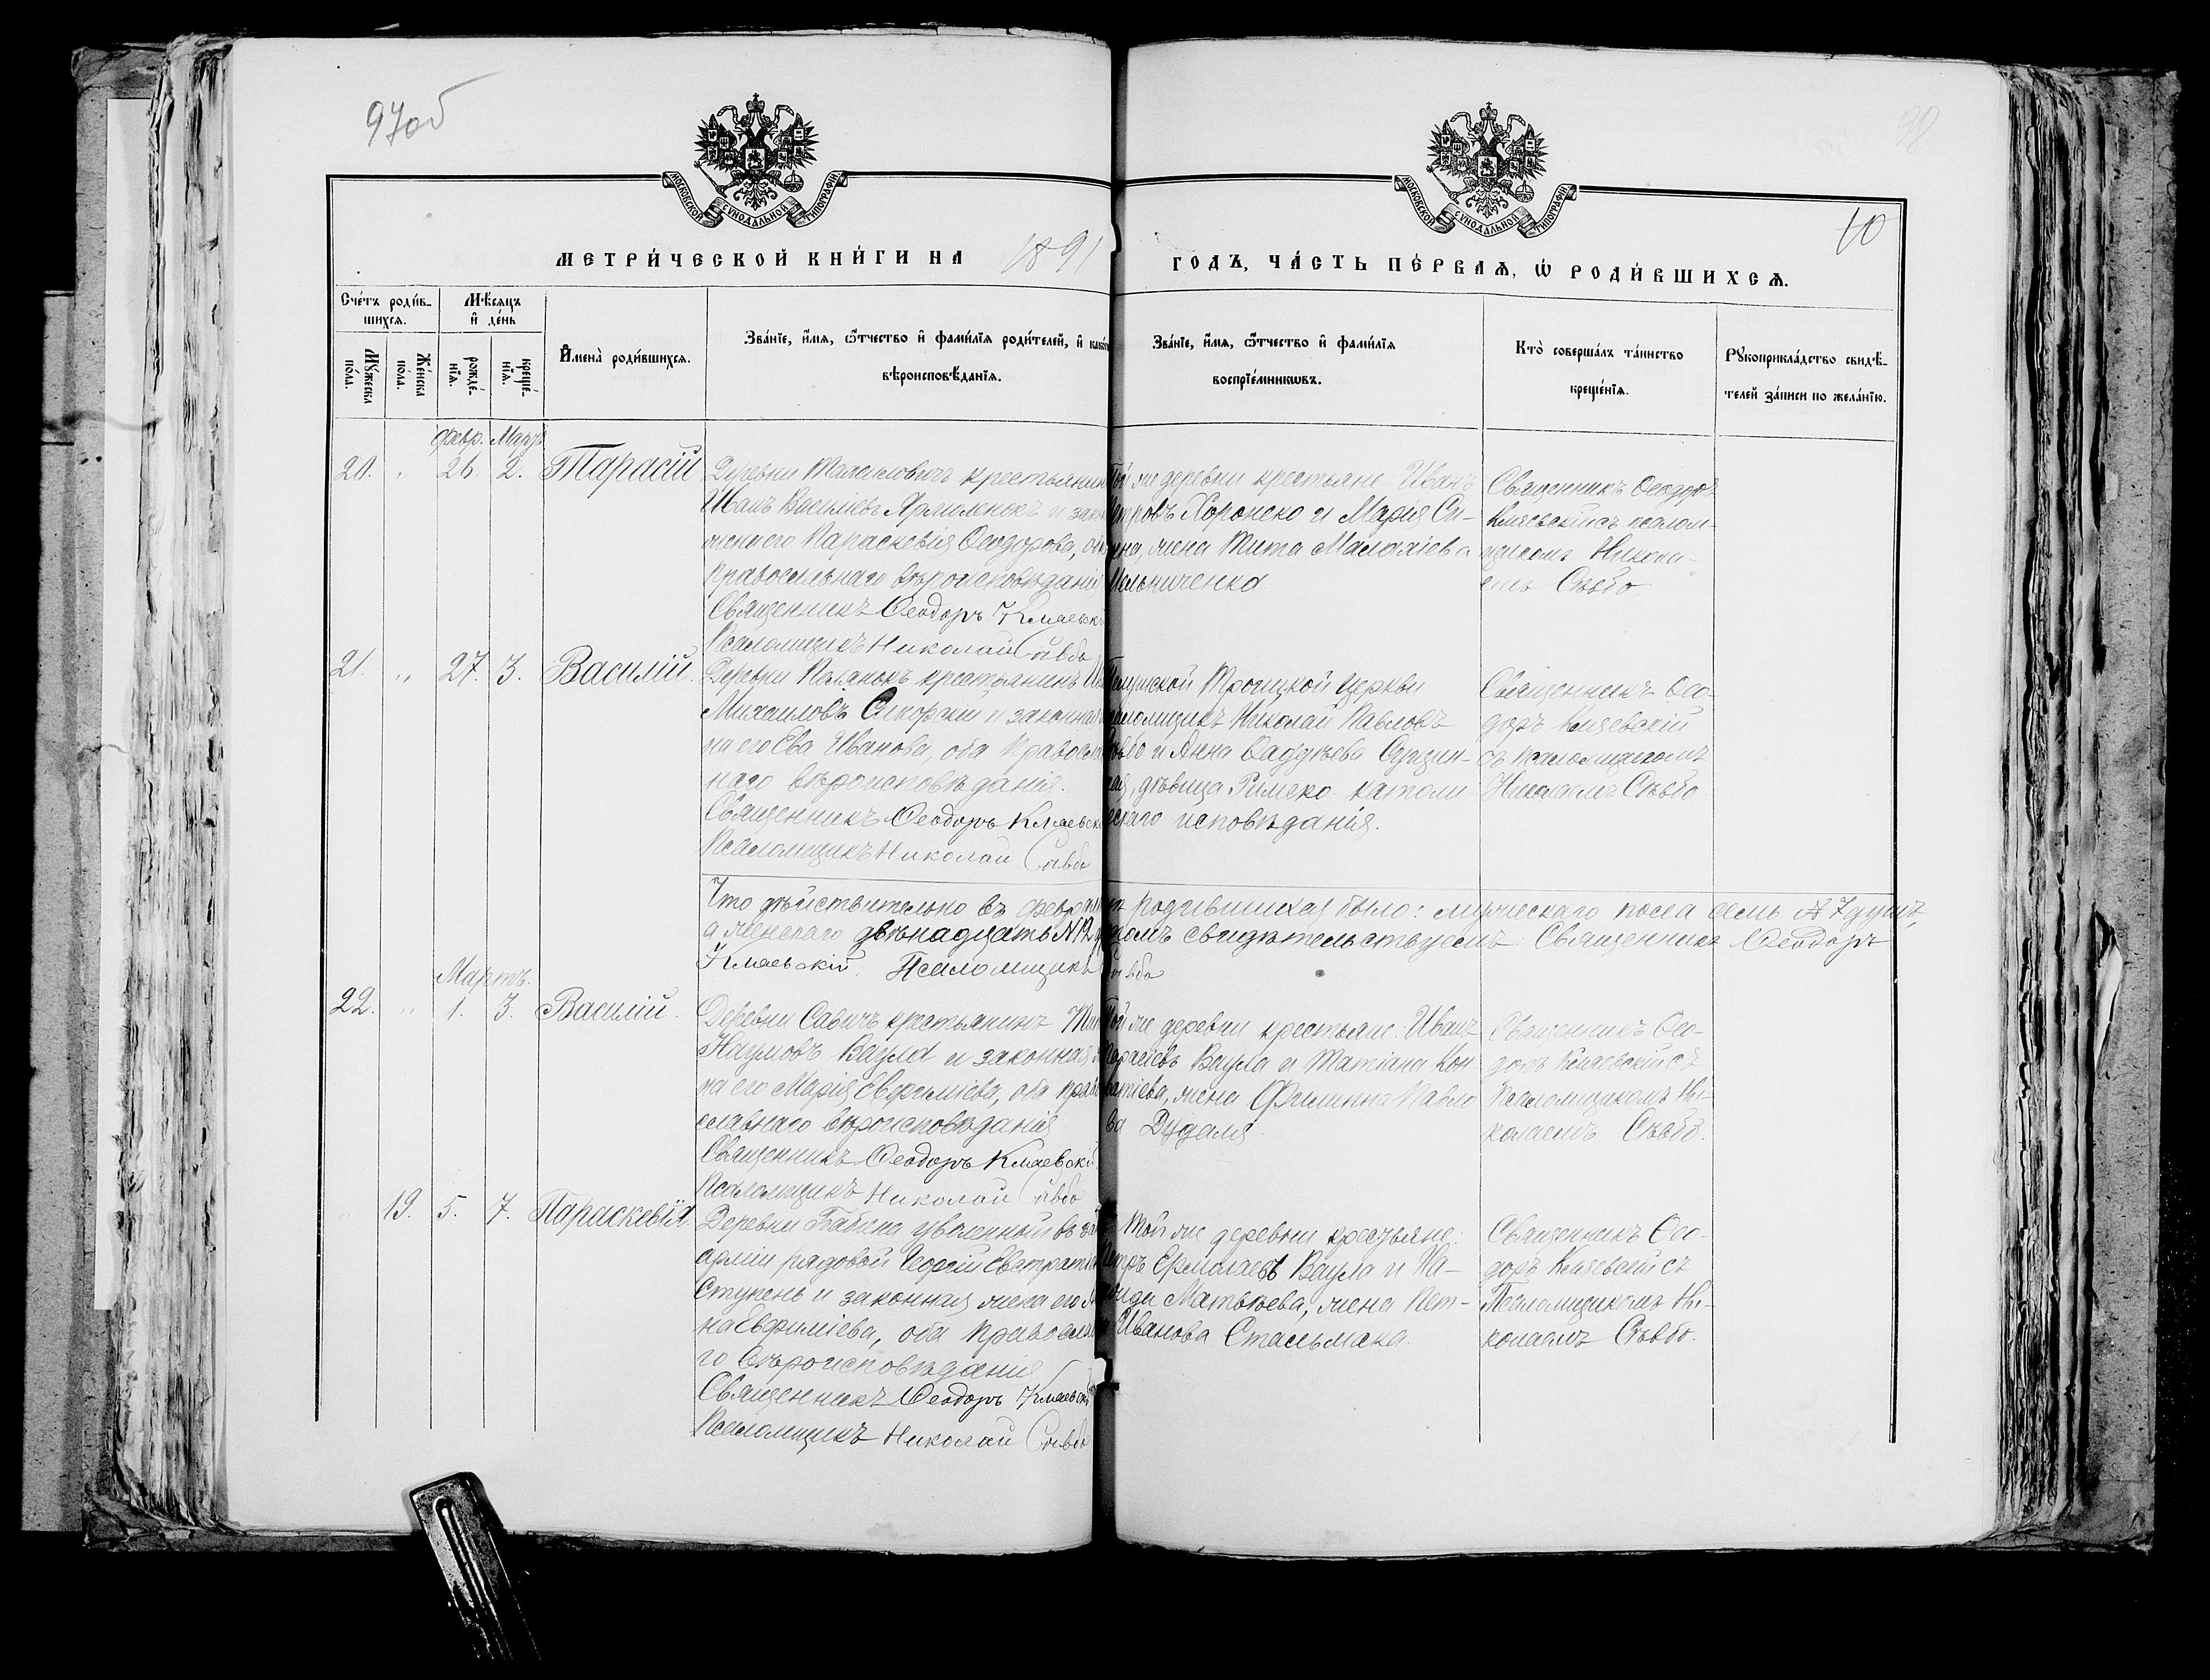 97об
98
МОСКОВСКОЙ СѴНОДАЛЬНОЙ ТИПОГРАФІИ
МОСКОВСКОЙ СѴНОДАЛЬНОЙ ТИПОГРАФІИ
10
МЕТРИ́ЧЕСКОЙ КНИ́ГИ НА 1891 ГОДЪ, ЧА́СТЬ ПЕ́РВАѦ, Ѡ РОДИ́ВШИХСѦ.
Сче́тъ роди́вшихсѧ.
Мѣ́сѧцъ и де́нь
Мꙋ́жеска по́ла.
Же́нска по́ла.
рожде́нїѧ.
креще́нїѧ.
И́мена̀ роди́вшихсѧ.
Зва́нїе, и́мѧ, ѻ́тчество и фами́лїѧ роди́телей, и како́
вѣроисповѣ́данїѧ.
Зва́нїе, и́мѧ, ѻ́тчество и фами́лїѧ
воспрїе́мникѡвъ.
Кто̀ соверша́лъ та́инство
креще́нїѧ.
Рꙋкоприкла́дство свидѣ́телей за́писи по жела́нїю.
Февр. Мартъ
20. „ 26. 2. Тарасій
Деревни крестьянин
Иванъ Василіевъ Ярмоленокъ и зак
жена его Параскевія Ѳеодорова, оба
православнаго вѣроисповѣданія
Священникъ Ѳеодоръ Кмаевскі
Псаломщикъ Николай Сѣвбо
Той же деревни крестьяне: Иванъ
Петровъ Хоронеко и Марія Си-
жена Тита Малахіева
Мельниченка
Священникъ Ѳеодоръ
Кмаевскій съ псалом-
щикомъ Никола-
емъ Сѣвбо.
21. „ 27. 3. Василій.
Деревни крестьянинъ
Михаиловъ Сикорскій и законная
на его Ева Иванова, оба православ
наго вѣроисповѣданія.
Священникъ Ѳеодоръ Кмаевскі
Псаломщикъ Николай Сѣвбо
Троицкой церкви
псаломщикъ Николай Павловъ
Сѣвбо и Анна Ѳаддѣева
дѣвица Римско католи
ческаго исповѣданія.
Священникъ Ѳео-
доръ Кмаевскій
съ псаломщикомъ
Николаемъ Сѣвбо
Что дѣйствительно въ февралѣ родившихся было: мужескаго пола семь № 7 душъ,
а женскаго двѣнадцать № 12 свидѣтельствуемъ: Священникъ Ѳеодоръ
Кмаевскій. Псаломщикъ Сѣвбо
Мартъ.
22. „ 1. 3. Василій.
Деревни Савичъ крестьянинъ
Наумовъ Ваула и законная же
на его Марія Евфиміева, оба право
славнаго вѣроисповѣданія
Священникъ Ѳеодоръ Кмаевскій.
Псаломщикъ Николай Сѣвбо
Той же деревни крестьяне: Иванъ
Ваула и Татіана Кон-
дратіева, жена Филиппа Павло
ва Дудаля.
Священникъ Ѳео-
доръ Кмаевскій съ
Псаломщикомъ Ни-
колаемъ Сѣвбо.
19. 5. 7. Параскевія.
Деревни уволенный въ за
армии рядовой Георгій Евстратіев
Ступень и законная жена его
на Евфиміева, оба православна
го вѣроисповѣданія
Священникъ Ѳеодоръ Кмаевскі
Псаломщикъ Николай Сѣвбо
Той же деревни крестьяне:
Петръ Ермолаевъ Ваула и
Матвѣева, жена Пет-
ра Иванова Стельмаха.
Священникъ Ѳео-
доръ Кмаевскій съ
Псаломщикомъ Ни-
колаемъ Сѣвбо.